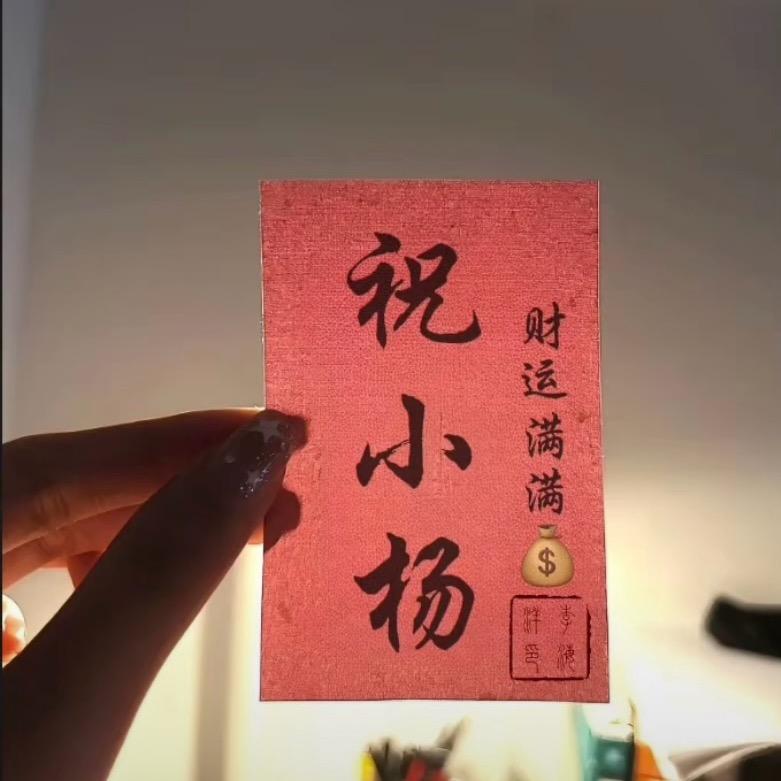 祝小杨
财运满满
李海洋印